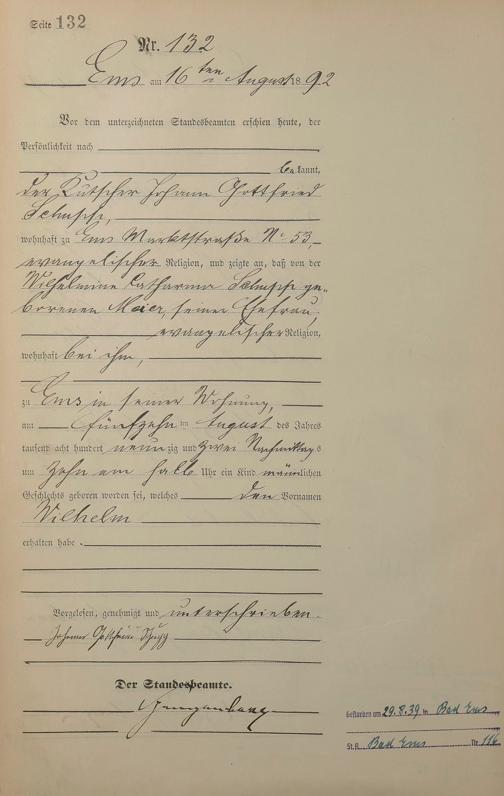 Seite 132
Nr. 132
Ems am 16ten August 1892
Vor dem unterzeichneten Standesbeamten erschien heute, der
Persönlichkeit nach
bekannt,
der Kutscher Johann Gottfried
wohnhaft zu Ems Marktstraße No 53
evangelischer Religion, und zeigte an, daß von der
Wilhelmine Catharina ge-
borenen Meier, seiner Ehefrau,
evangelischer Religion,
wohnhaft bei ihm,
zu Ems in seiner Wohnung,
am fünfzehn ten August des Jahres
tausend acht hundert neunzig und zwei Nachmittags
um zehn ein halb Uhr ein Kind männlichen
Geschlechts geboren worden sei, welches den Vornamen
Wilhelm
erhalten habe.
Vorgelesen, genehmigt und unterschrieben.
Johann Gottfried
Der Standesbeamte.
gestorben am 29.8.39 in Bad Ems
St.A. Bad Ems Nr. 116